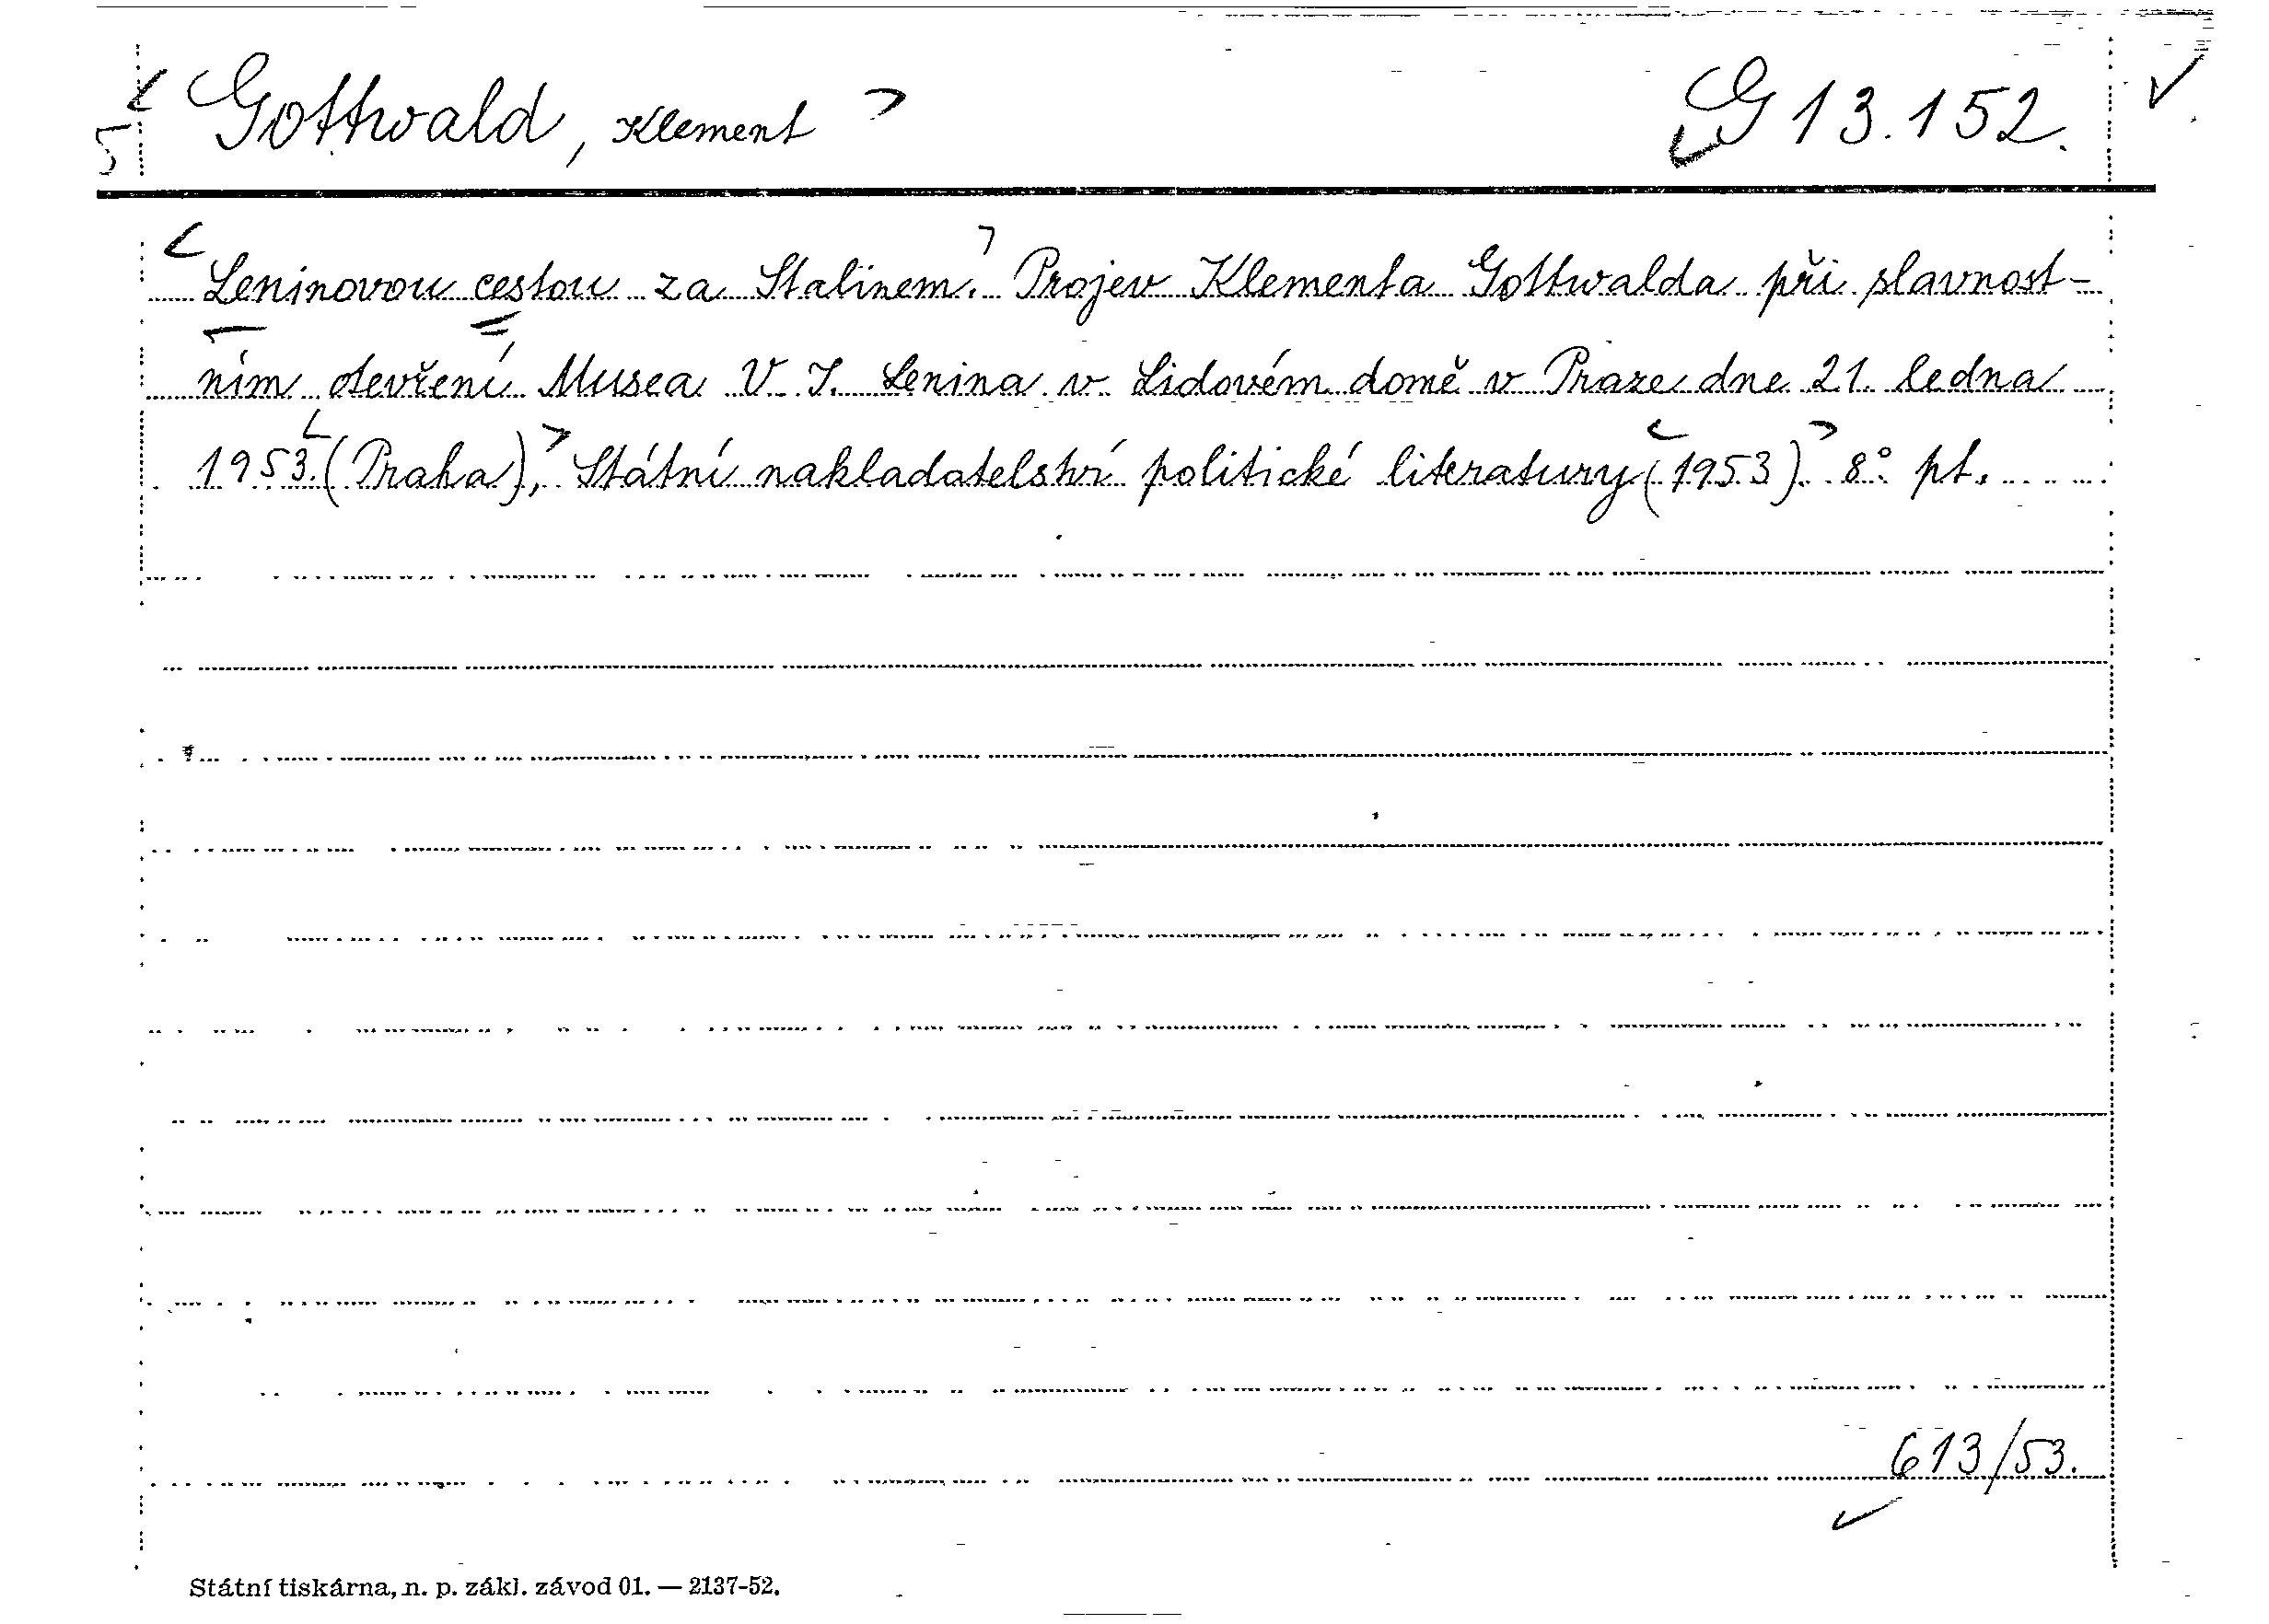 Gottwald, Klement G 13.152.
5
Leninovou cestou za Stalinem. Projev Klementa Gottwalda při slavnost-
ním otevření Musea V. I. Lenina v Lidovém domě v Praze dne 21. ledna
1953. (Praha), Státní nakladatelství politické literatury (1953). 8° pt.
613/53.
Státní tiskárna, n. p. zákl. závod 01. — 2137-52.